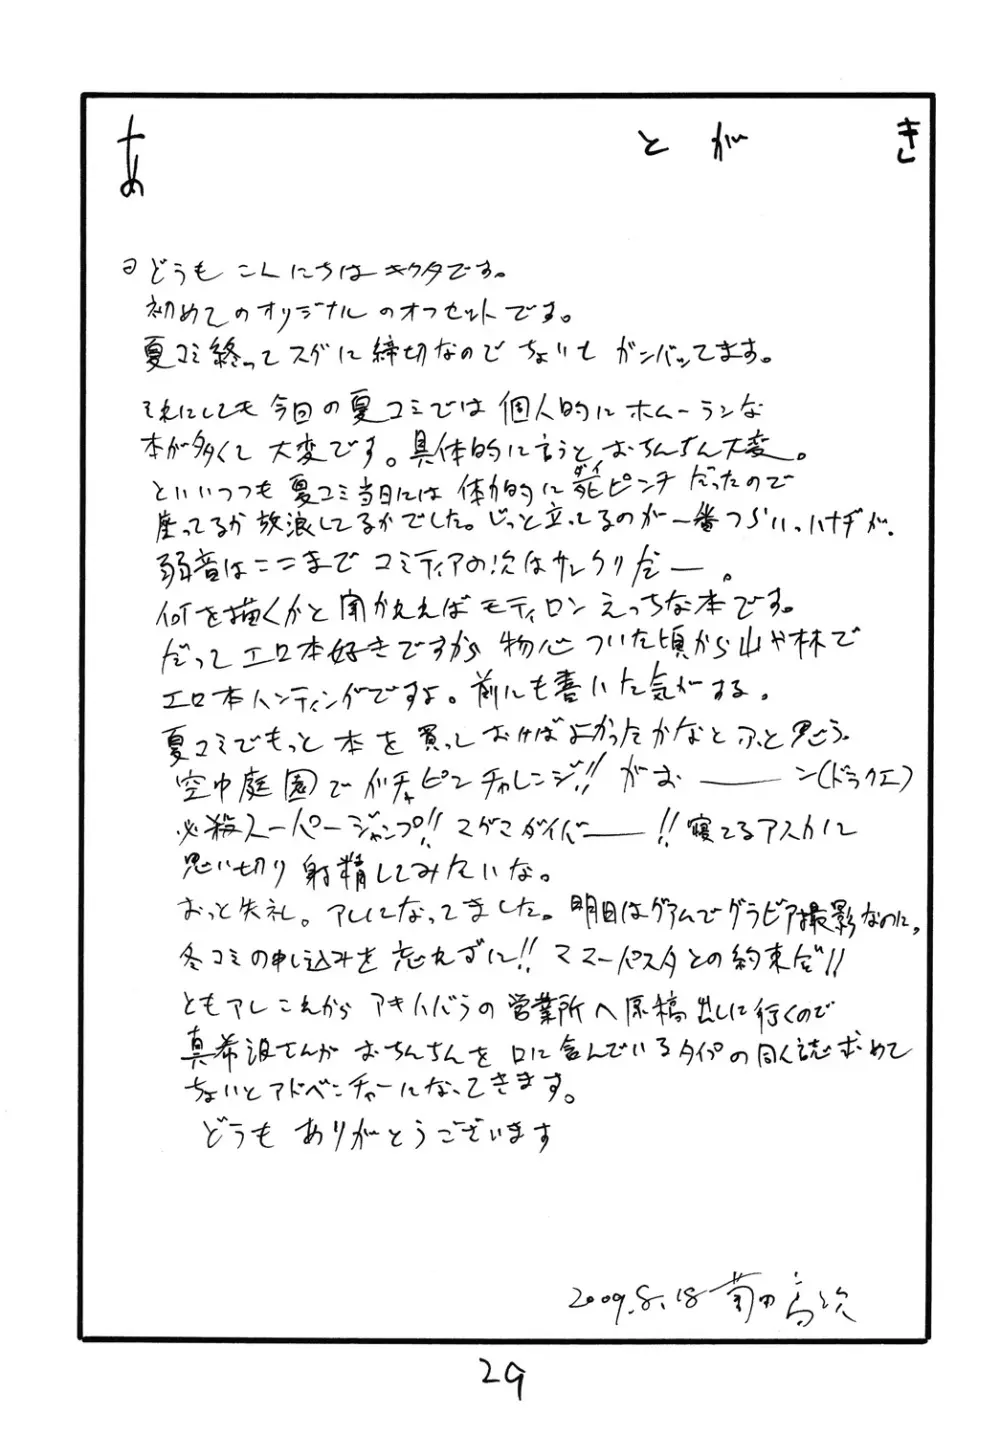 あとがき
どうも こんにちは キクタです。
初めてのオリジナルのオフセットです。
夏コミ終ってスグに締切なので ちょいとガンバッてます。
それにしても今回の夏コミでは個人的にホームーランな
本が多くて大変です。具体的に言うと、おちんちん大変。
といいつつも夏コミ当日には体力的に死ダイピンチだったので
座ってるか放浪してるかでした。じっと立ってるのが一番つらい。ハナヂが。
弱音はここまで コミティアの次はサンクリだー。
何を描くかと聞かれればモティロンえっちな本です。
だってエロ本好きですから 物心ついた頃から山や林で
エロ本ハンティングですよ。前にも書いた気がする。
夏コミでもっと本を買っておけばよかったかなと ふと思う。
空中庭園でガチャピンチャレンジ!! がお――ン(ドラクエ)
必殺スーパージャンプ!! マグマダイバー――!! 寝てるアスカに
思い切り射精してみたいな。
おっと失礼。アレになってました。明日はグアムでグラビア撮影なのに。
冬コミの申し込みを忘れずに!! ママースパスタとの約束だ!!
ともアレ これからアキハバラの営業所へ原稿出しに行くので
真希波さんがおちんちんを口に含んでいるタイプの同人誌求めて
ちょいとアドベンチャーになってきます。
どうもありがとうございます
2009.8.18 菊田高次
29